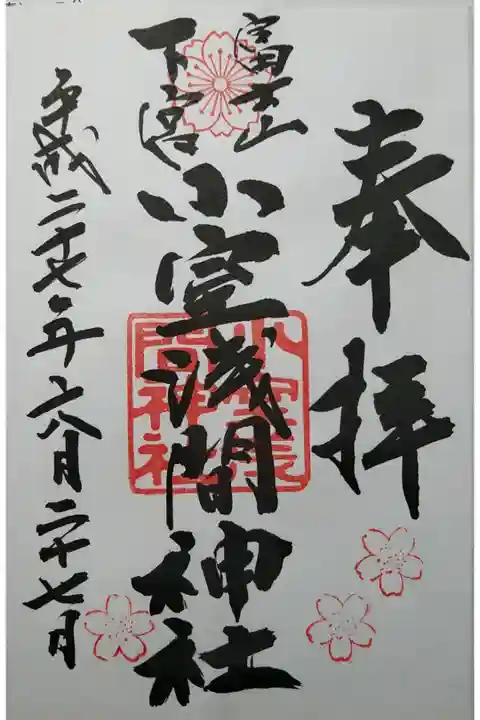 奉拝
富士山
下宮
小室浅間神社
小室浅間神社
平成二十七年六月二十七日